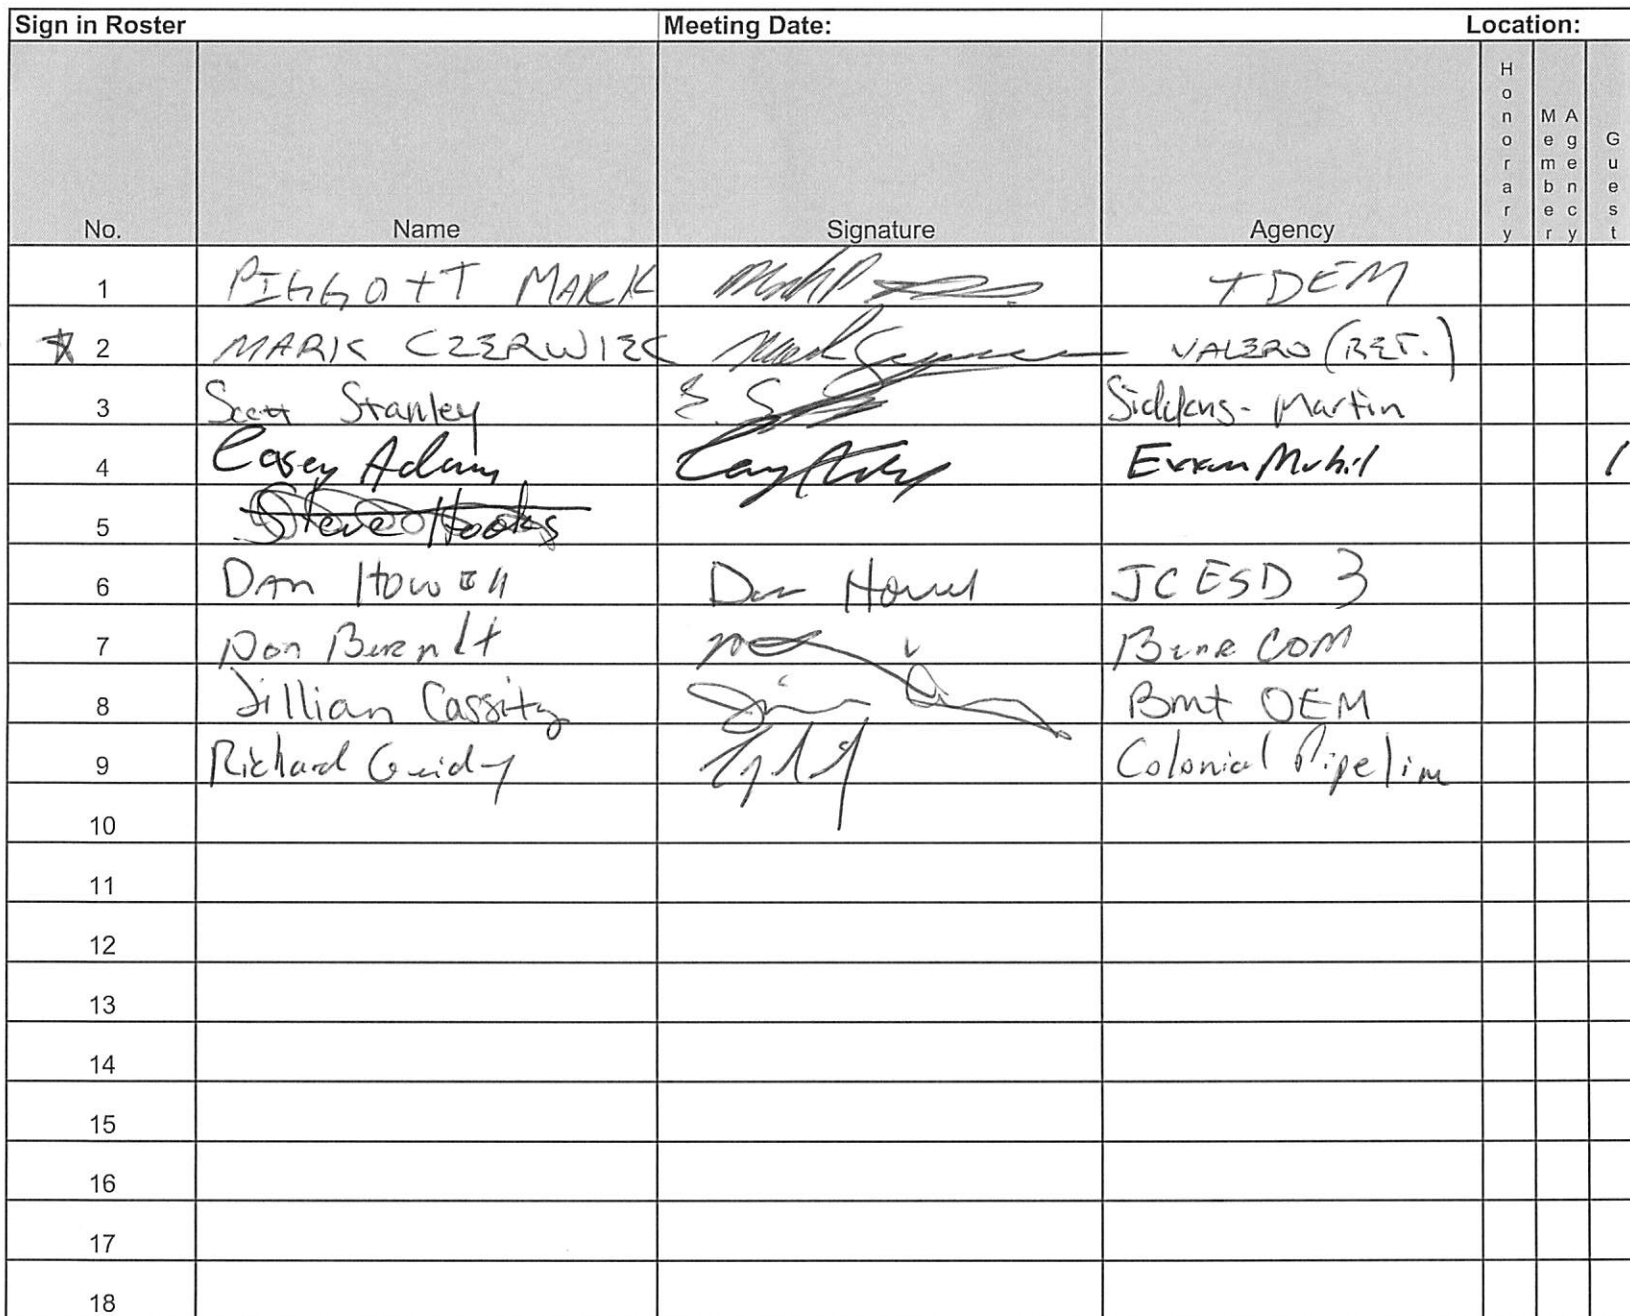 Sign in Roster Meeting Date: Location:
No. Name Signature Agency Honorary Member Agency Guest
1 PIGGOTT MARK TDEM
2 MARK CZERWIEC VALERO (RET.)
3 Scott Stanley Siddons-Martin
4 Casey Adams Exxon Mobil /
5 Steve Hooks
6 Dan Howell Dan Howell JCESD 3
7 Don Burnlt COM
8 Jillian Cassity Bmt OEM
9 Richard Guidry Colonial Pipeline
10
11
12
13
14
15
16
17
18